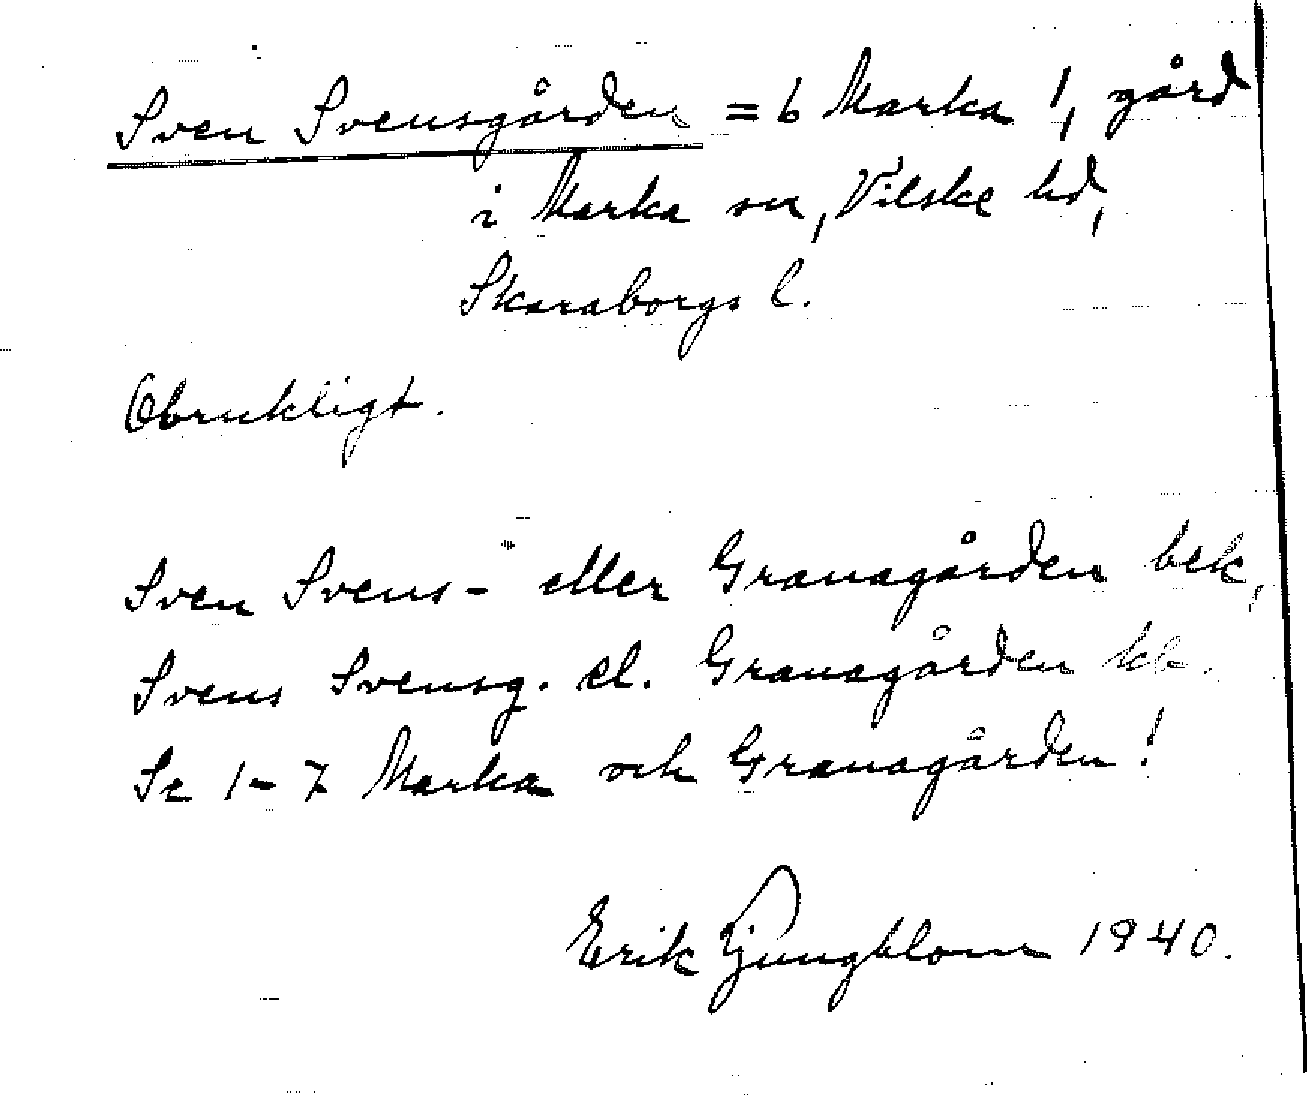 Sven Svensgården = 6 Marka !, gård
i Marka sn, Vilske hd,
Skaraborgs l.
Obrukligt.
Sven Svens- eller Granagården bek,
Svens Svensg. el. Granagården kb.
Se 1-7 Marka och Granagården!
Erik Ljungblom 1940.